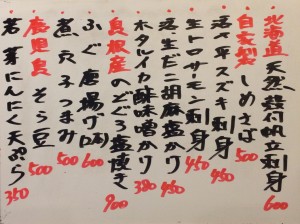 北海道天然殻付帆立刺身 600
自家製しめさば 500
活〆平スズキ刺身 450
生トロサーモン刺身 450
活・生だこ胡麻塩かけ 450
ホタルイカ酢味噌かけ 380
島根産のどぐろ塩焼き 900
ふぐ唐揚げ 600
煮穴子つまみ 500
鹿児島そら豆 500
若芽にんにく天ぷら 350